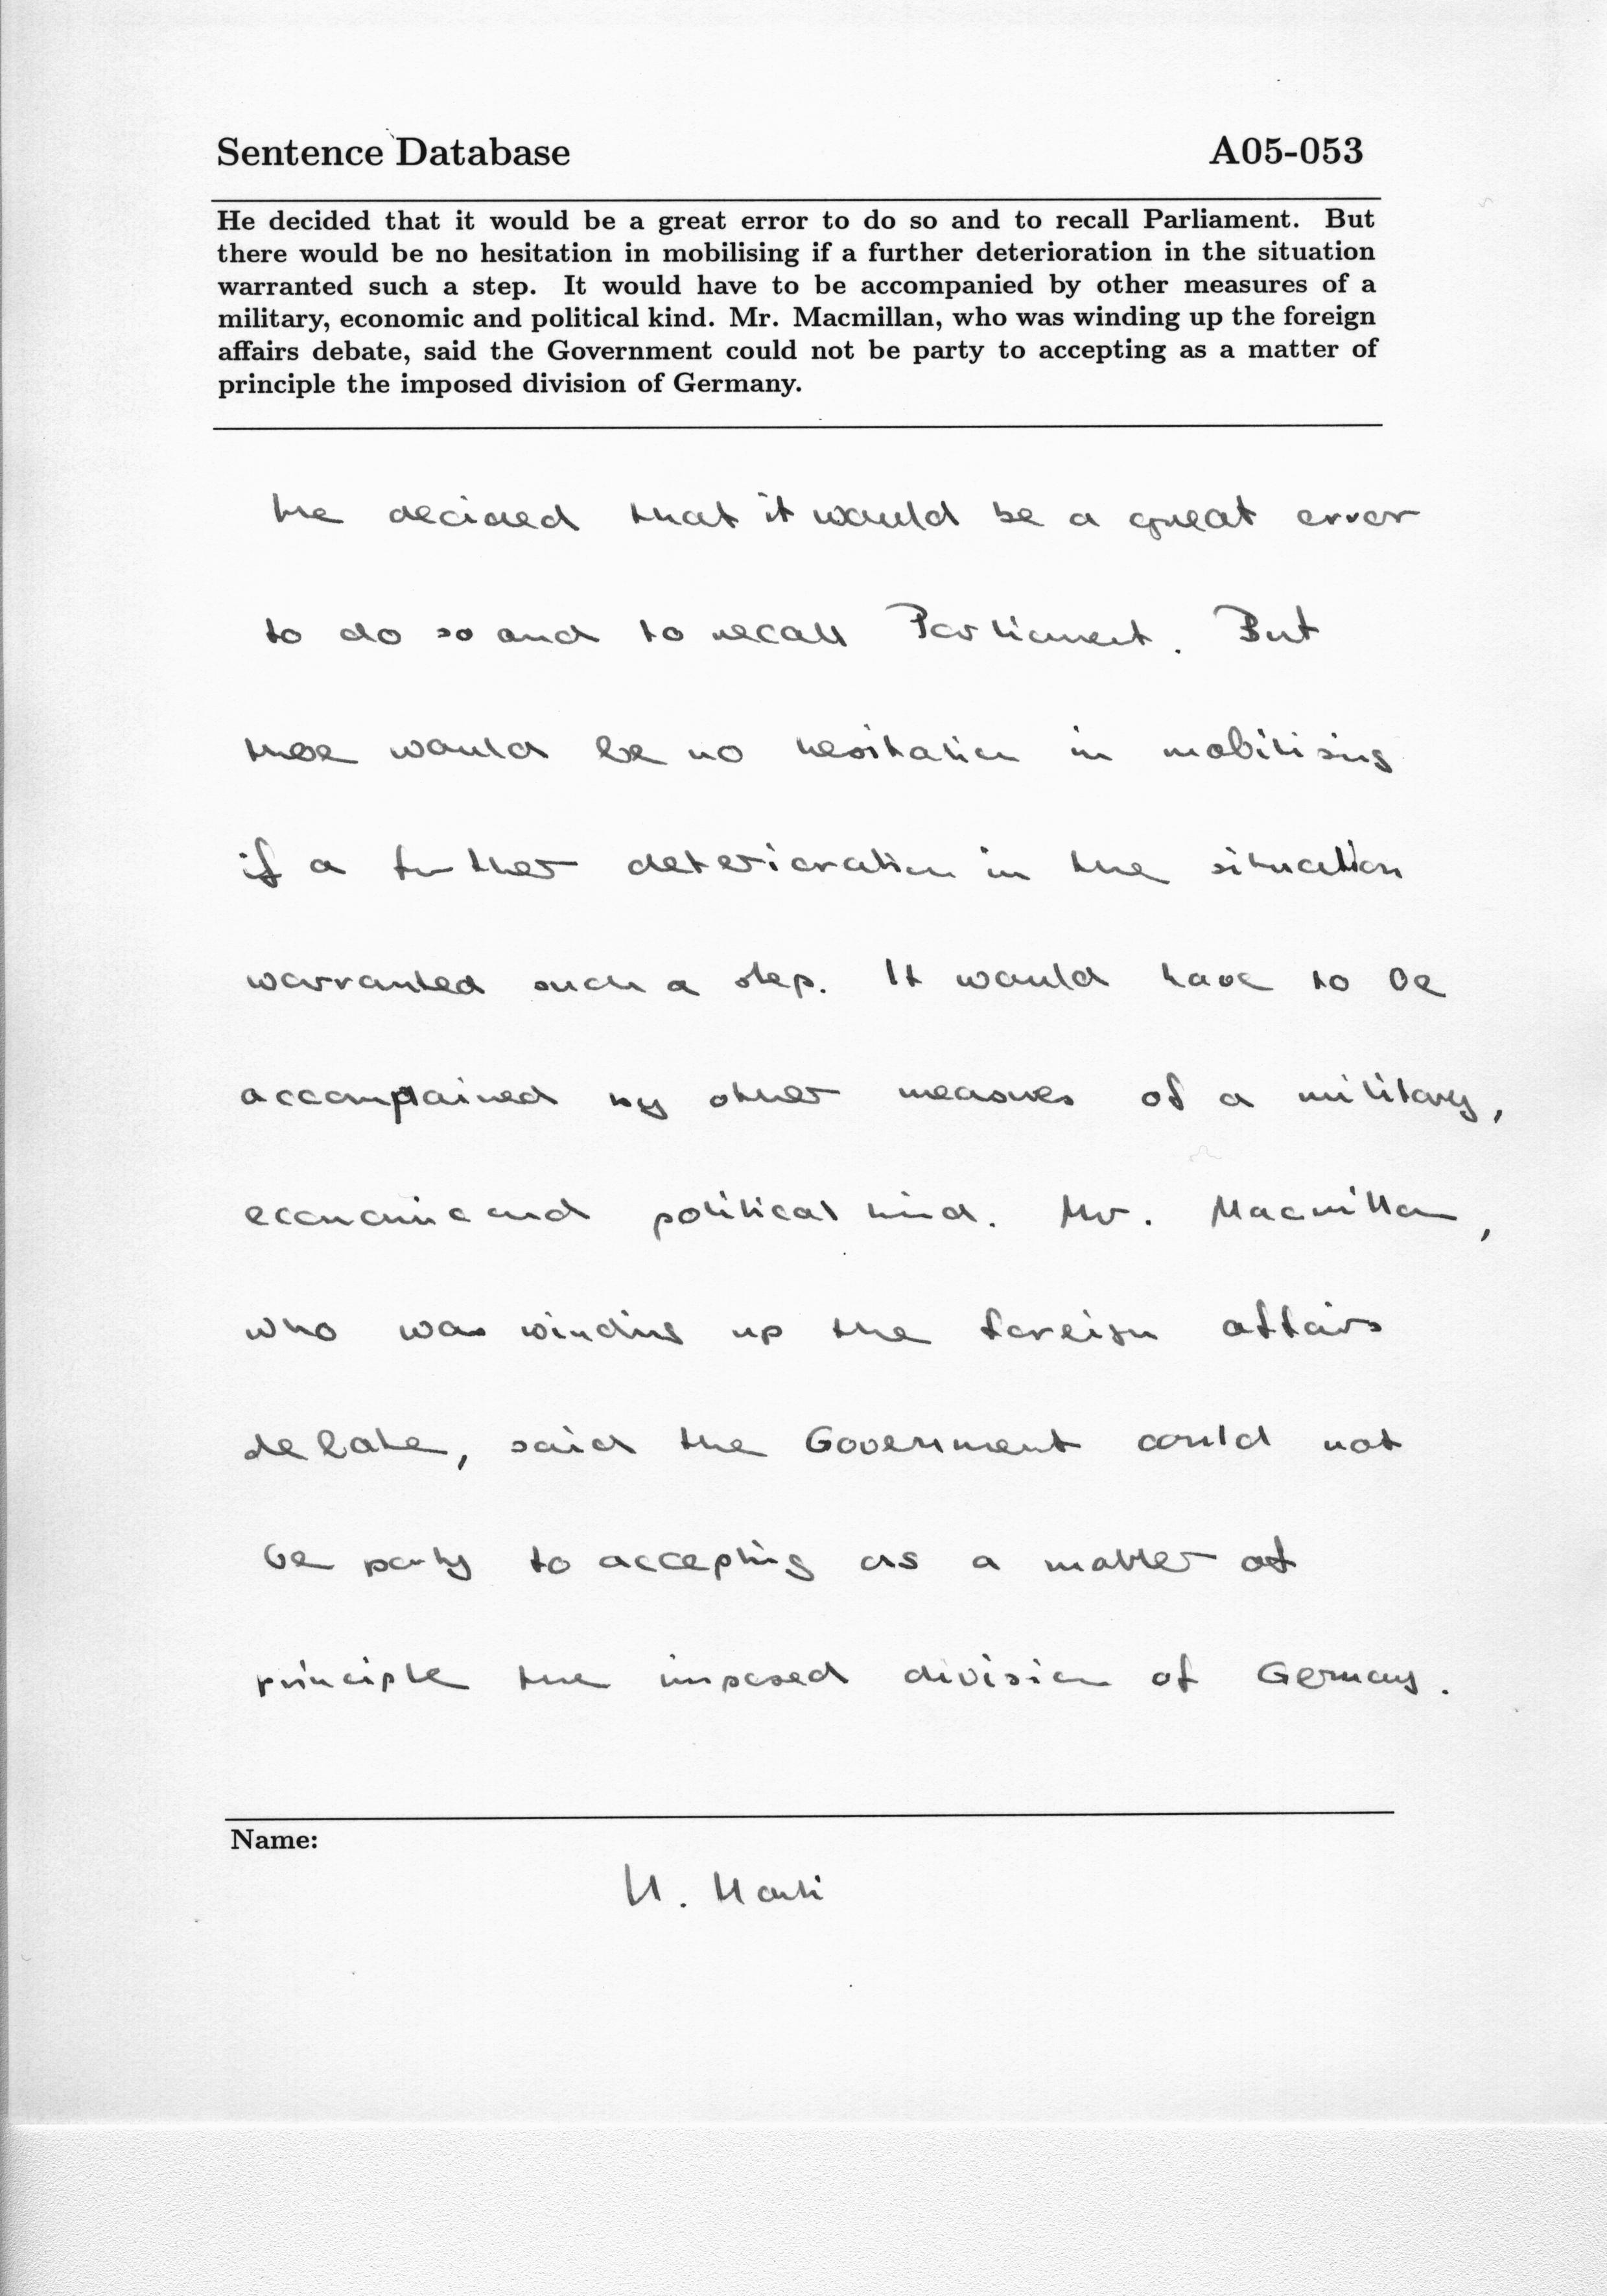 Sentence Database A05-053
He decided that it would be a great error to do so and to recall Parliament. But
there would be no hesitation in mobilising if a further deterioration in the situation
warranted such a step. It would have to be accompanied by other measures of a
military, economic and political kind. Mr. Macmillan, who was winding up the foreign
affairs debate, said the Government could not be party to accepting as a matter of
principle the imposed division of Germany.
He decided that it would be a great error
to do so and to recall Parliament. But
there would be no hesitation in mobilising
if a further deterioration in the situation
warranted such a step. It would have to be
accompained by other measures of a military,
economic and political kind. Mr. Macmillan,
who was winding up the foreign affairs
debate, said the Government could not
be party to accepting as a matter of
principle the imposed division of Germany.
Name: